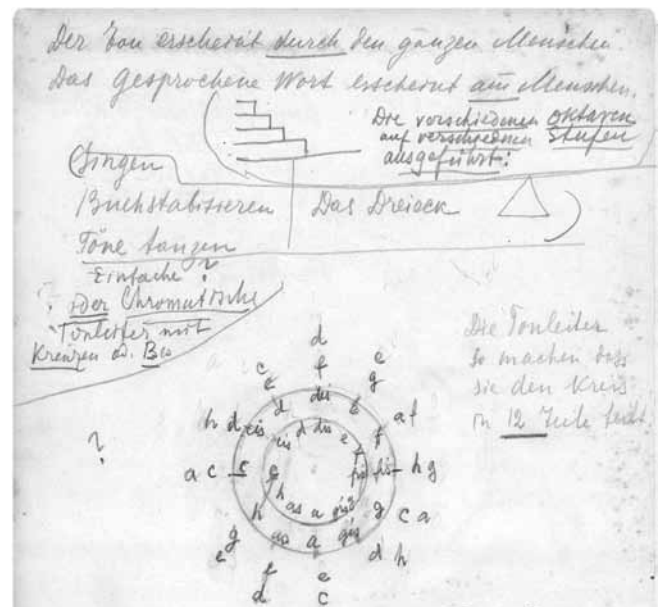 Der Ton erscheint durch den ganzen Menschen.
Das gesprochene Wort erscheint am Menschen.
Die verschiedenen Oktaven
auf verschiednen Stufen
ausgeführt!
Singen
Buchstabieren
Das Dreieck
Töne tanzen
Einfache ?
? oder Chromatische
Tonleiter mit
Kreuzen od. Bes
Die Tonleiter
so machen dass
sie den Kreis
in 12 Teile teilt.
?
d
c f e
e dis g
d e
h d cis cis d dis e f a f
a c c c fis fis h g
h h g c a
g as a gis
e as a gis d h
f e
d c